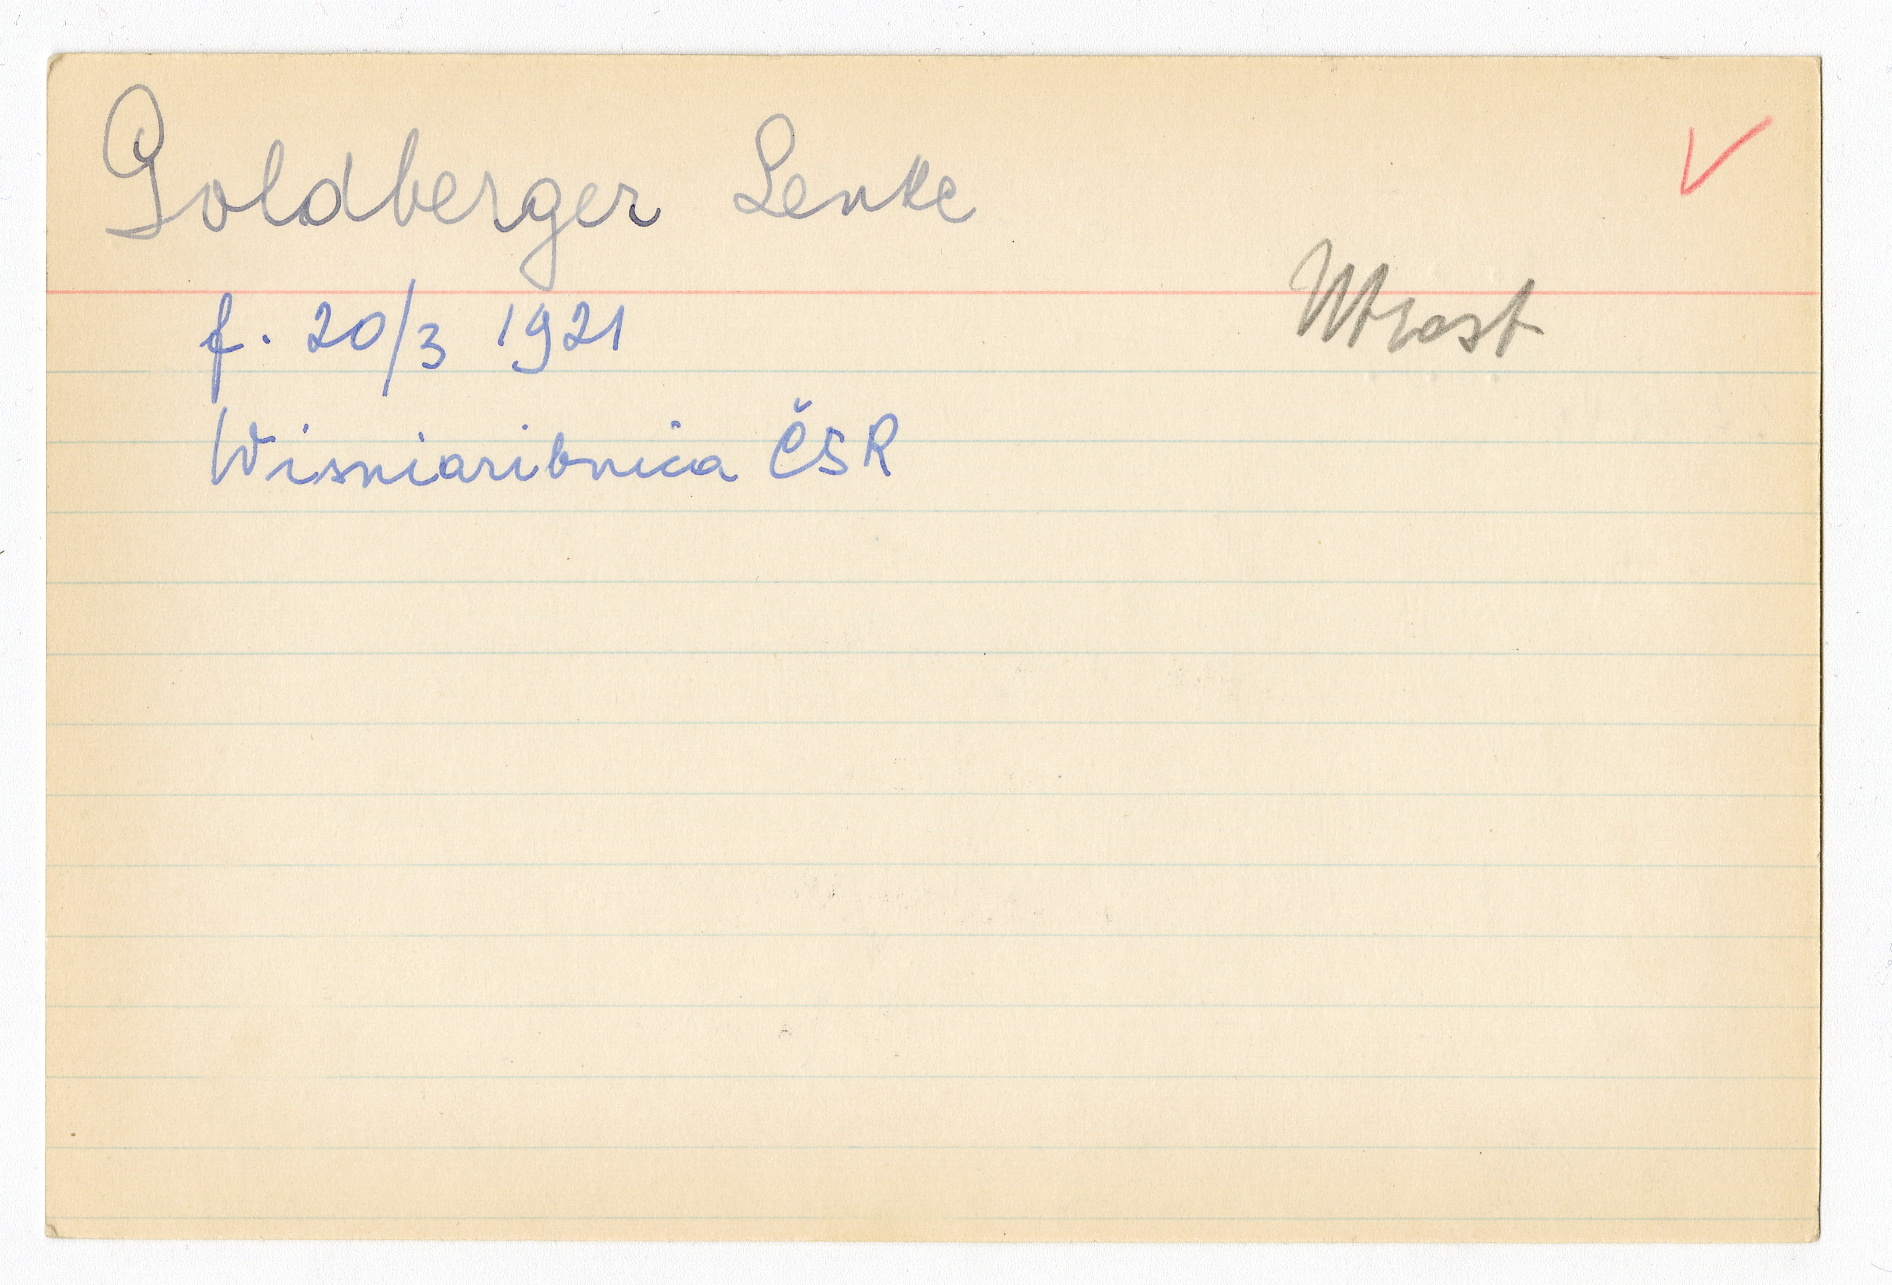 Goldberger Lenke
f. 20/3 1921
Wisniaribnica ČSR
Utrest